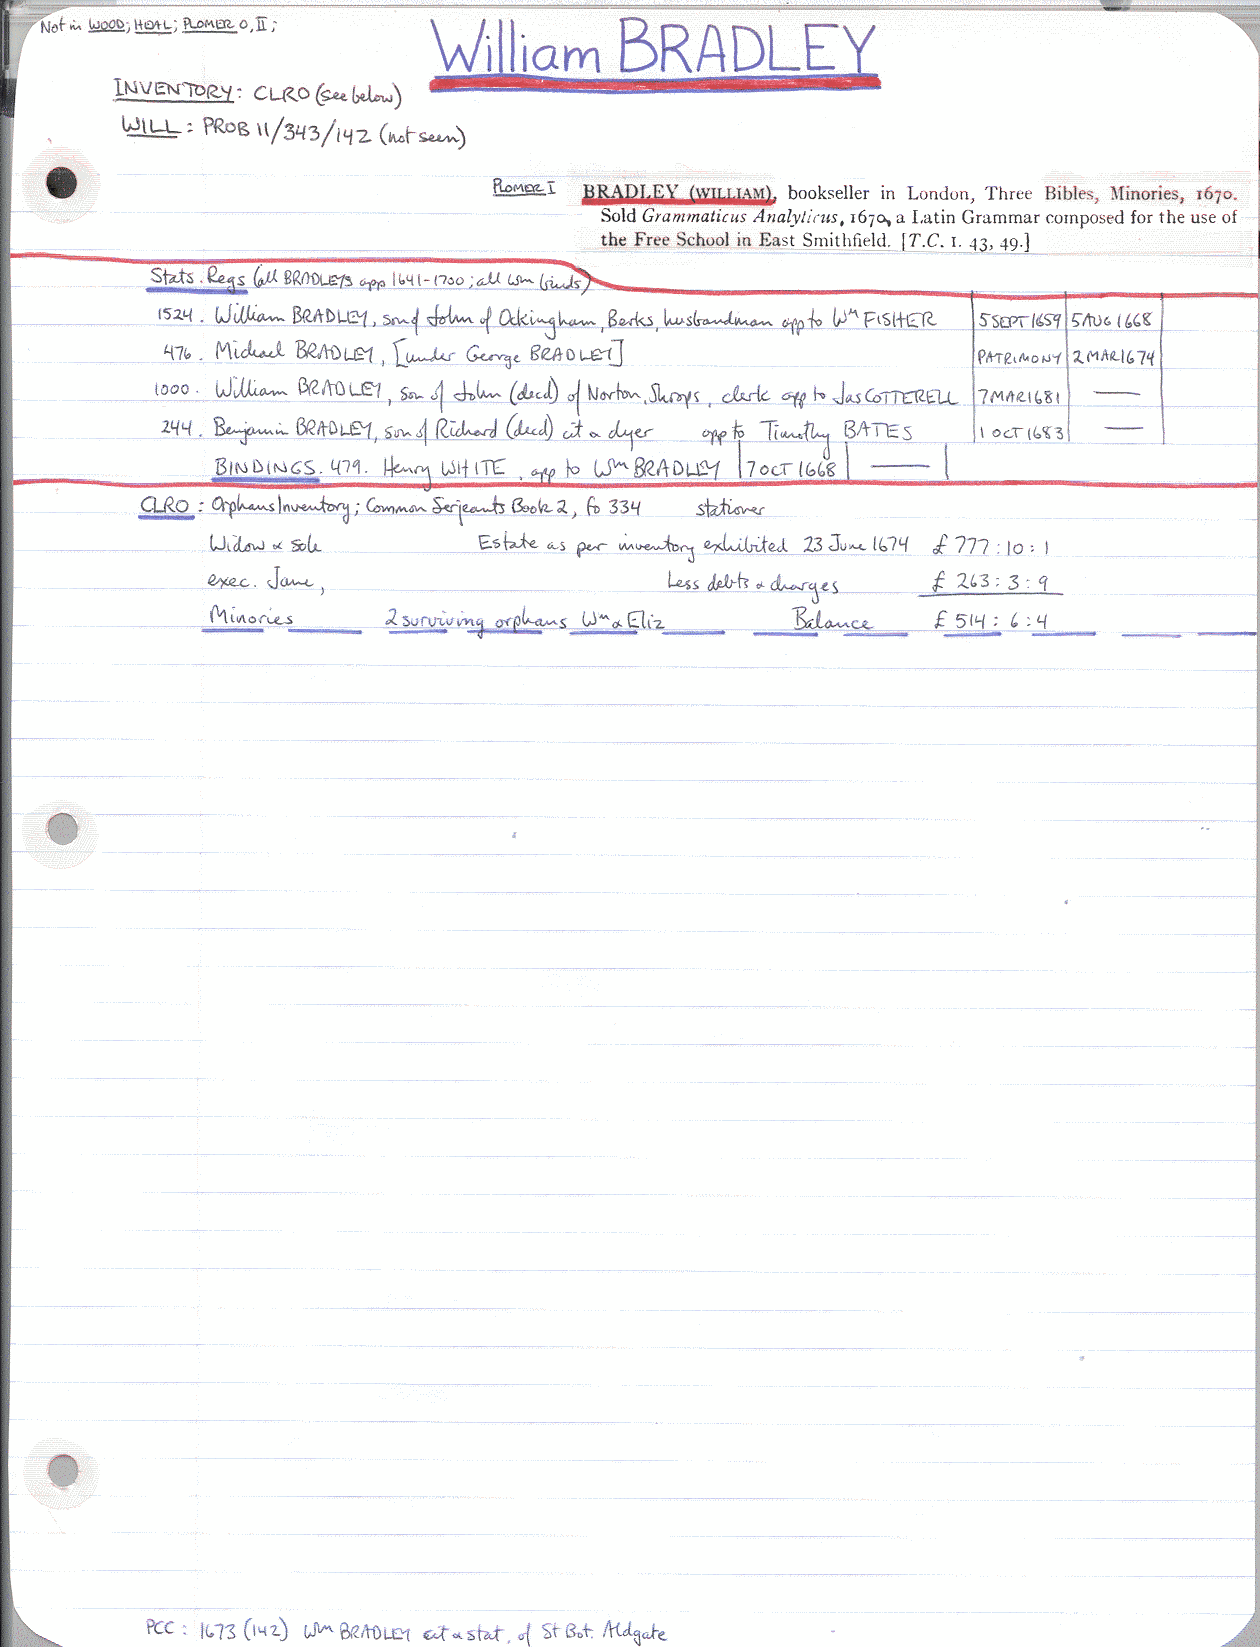 Not in WOOD; HEAL; PLOMER O, II;
William BRADLEY
INVENTORY: CLRO (see below)
WILL: PROB 11/343/142 (not seen)
PLOMER I BRADLEY (WILLIAM), bookseller in London, Three Bibles, Minories, 1670.
Sold Grammaticus Analyticus, 1670, a Latin Grammar composed for the use of
the Free School in East Smithfield. [T.C. I. 43, 49.]
Stats. Regs (all BRADLEYs app 1641-1700; all Wm binds)
1524. William BRADLEY, son of John of Ockingham, Berks, husbandman app to Wm FISHER 5 SEPT 1659 5 AUG 1668
476. Michael BRADLEY, [under George BRADLEY] PATRIMONY 2 MAR 1674
1000. William BRADLEY, son of John (decd) of Norton, Shrops, clerk app to Jas COTTERELL 7 MAR 1681 —
244. Benjamin BRADLEY, son of Richard (decd) cit & dyer app to Timothy BATES 1 OCT 1683 —
BINDINGS. 479. Henry WHITE, app to Wm BRADLEY 7 OCT 1668 —
CLRO: Orphans Inventory; Common Serjeants Book 2, fo 334 stationer
Widow & sole Estate as per inventory exhibited 23 June 1674 £ 777:10:1
exec. Jane, Less debts & charges £ 263:3:9
Minories 2 surviving orphans Wm & Eliz Balance £ 514:6:4
PCC: 1673 (142) Wm BRADLEY cit & stat. of St Bot. Aldgate